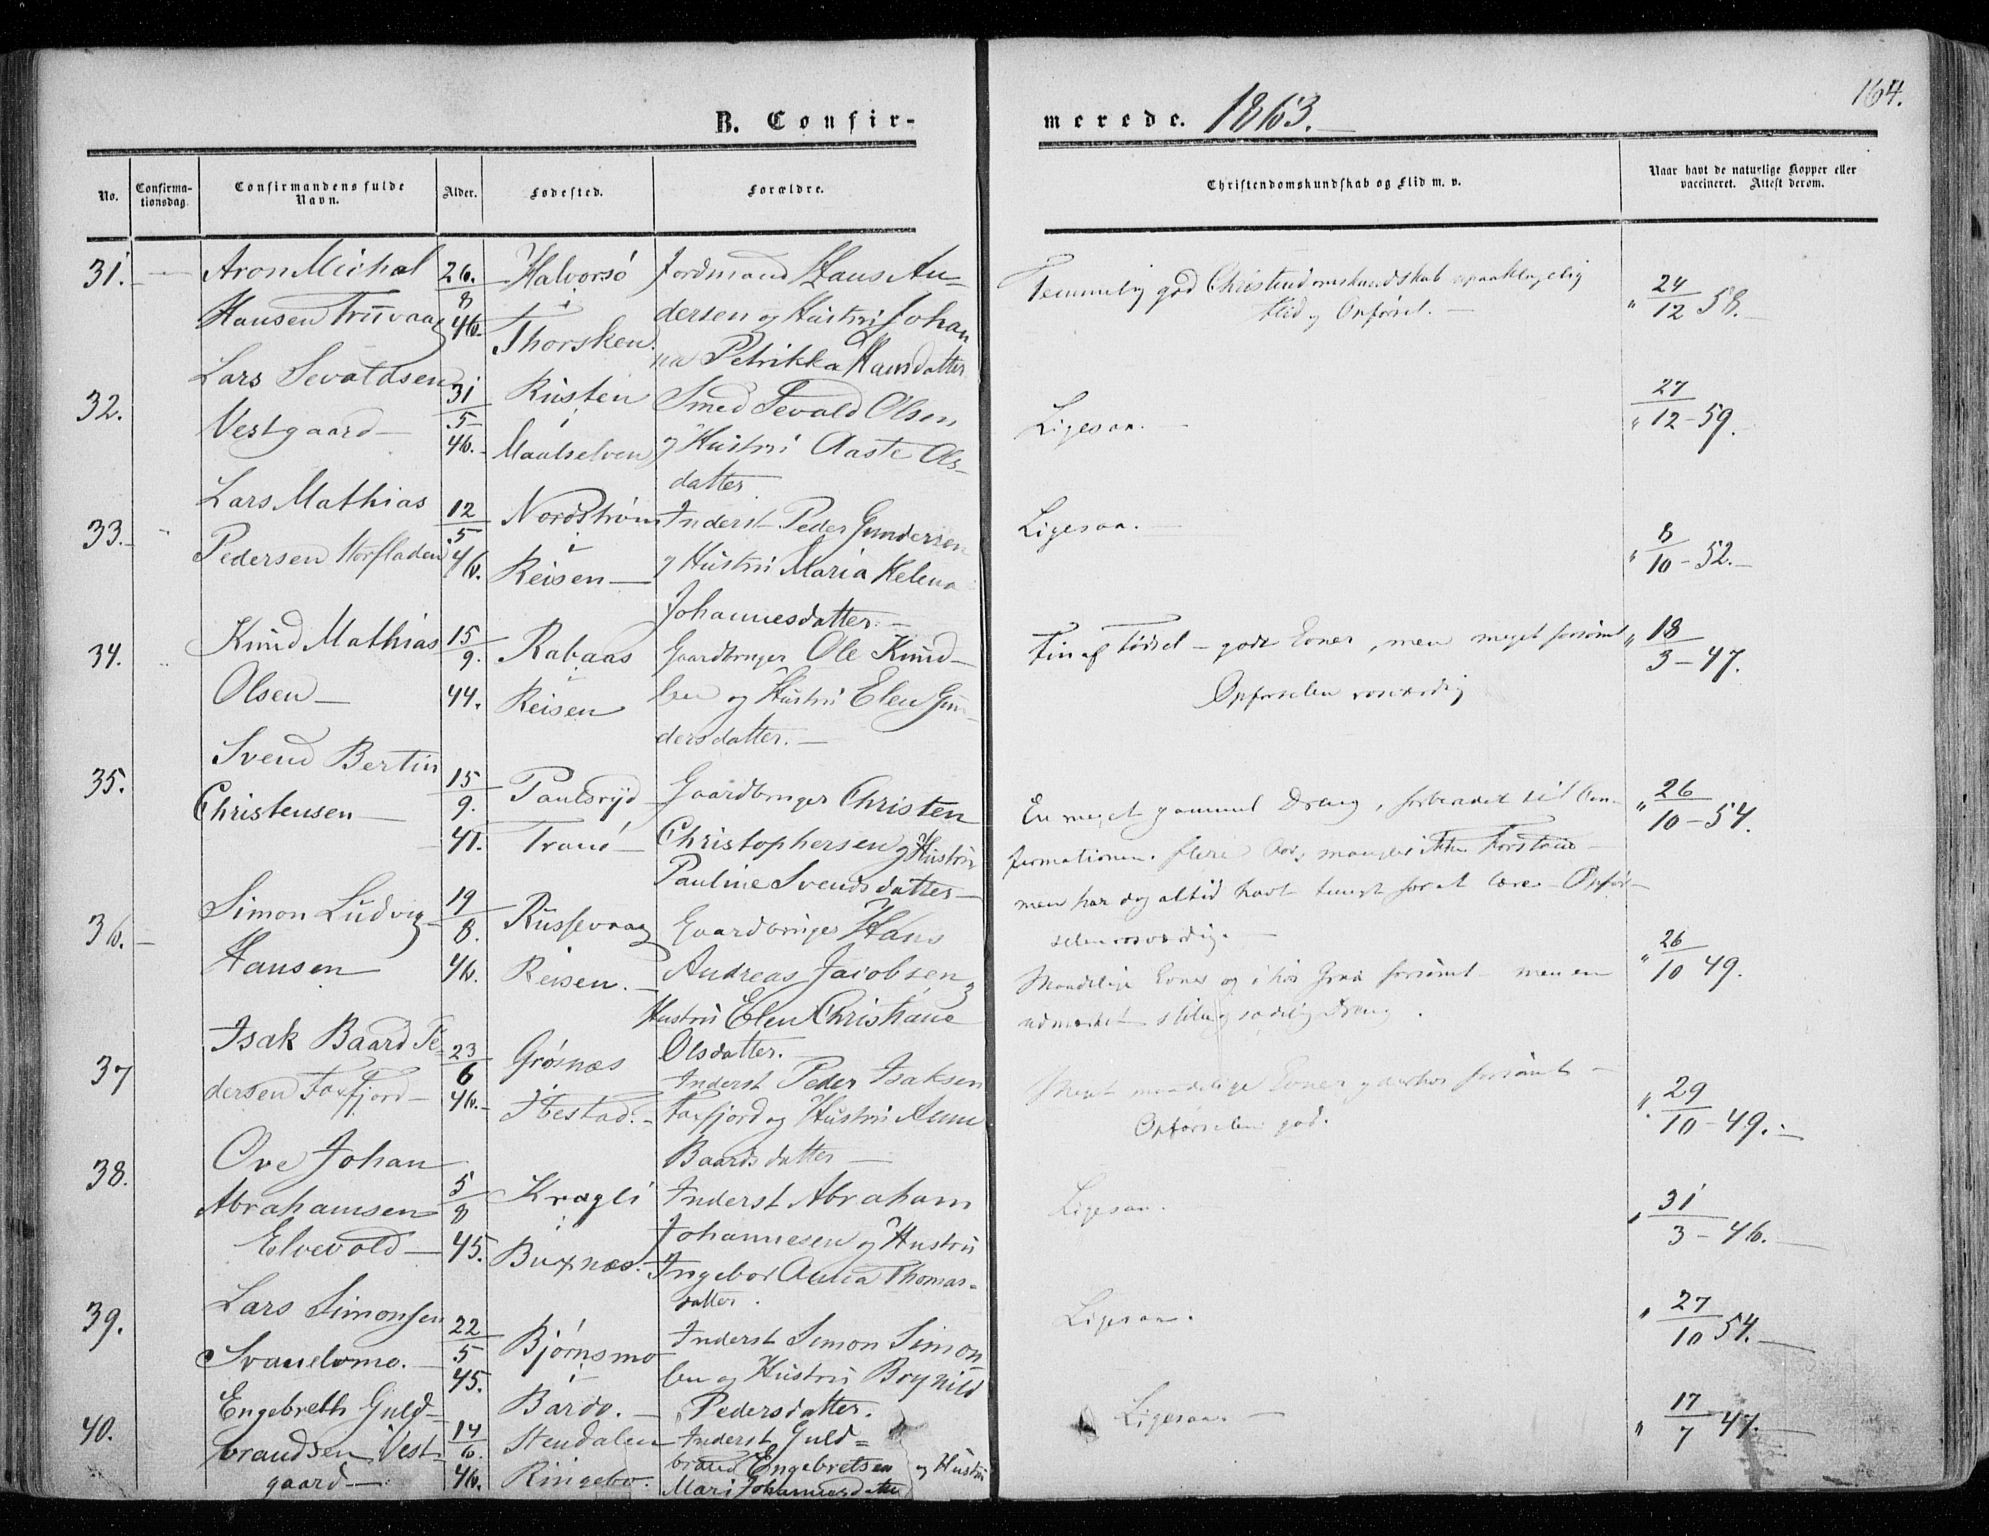 164.
B. Confir-
merede. 1863.
No.
Confirma-
tionsdag.
Confirmandens fulde
Navn.
Alder.
Fødested.
Forældre.
Christendomskundskab og Flid m. v.
Naar havt de naturlige Kopper eller
vaccineret. Attest derom.
31.
Aron Michal
Hansen Trüvaag
26.
8
46.
Halvorsö
i
Thorsken
Jordmand Hans An-
dersen og Hustru Johan
na Petrikka Hansdatter
Temmelig god Christendomskundskab upaaklagelig
Flid og Opførsel.
" 24
12 58.
32.
Lars Sevaldsen
Vestgaard
31
5
46.
Rusten
i
Maalselven
Smed Sevald Olsen
og Hustru Aaste Ols-
datter
Ligesaa.
" 27
12 - 59.
33.
Lars Mathias
Pedersen Storfladen
12
5
46.
Nordström
i
Reisen
Inderst Peder Gundersen
og Hustru Maria Helena
Johannesdatter.
Ligesaa.
" 8
10 - 52.
34.
Knud Mathias
Olsen
15
9.
44.
Rabaas
i
Reisen
Gaardbruger Ole Knud-
sen og Hustru Elen Gun
dersdatter.
Fin af Fødsel - gode Evner, men meget forsømt
Opførselen roesværdig
" 18
3 - 47.
35.
Svend Bertin
Christensen
15
9.
41.
Paulsrÿd
Tranö
Gaardbruger Christen
Christophersen og Hustru
Pauline Svendsdatter
En meget gammel Dreng, forberedet til Con-
firmationen flere Aar, mangler ikke Forstand
men har dog altid havt tungt for at lære - Opfør-
selen roesværdig.
" 26
10 - 54.
36.
Simon Ludvig
Hansen
19
8.
46.
Russevaag
Reisen.
Gaardbruger Hans
Andreas Jacobsen og
Hustru Elen Christiane
Olsdatter.
Maadelige Evner og i høi Grad forsømt - men en
udmærket stille og sædelig Dreng.
" 26
10 49.
37
Isak Baard Pe-
dersen Foxfjord
23
6
46.
Grøsnæs
Ibestad.
Inderst Peder Isaksen
Foxfjord og Hustru Anne
Baardsdatter
Meget maadelige Evner og derhos forsømt
Opførselen god.
" 29
10 - 49.
38.
Ove Johan
Abrahamsen
Elvevold
5
8
45.
Kragli
i
Buxnæs.
Inderst Abraham
Johannesen og Hustru
Ingebor Anna Thomas-
datter.
Ligesaa.
" 31
3 - 46.
39.
Lars Simonsen
Svanelvmo.
22
5
45.
Bjørnsmo
i
Bardo.
Inderst Simon Simon
sen og Hustru Brynild
Pedersdatter.
Ligesaa.
" 27
10 54.
40.
Engebreth Guld-
brandsen Vest-
gaard
14
6.
46.
Stendalen
Ringebo.
Inderst Guld=
brand Engebretsen og Hustru
Mari Johannesdatter
Ligesaa.
" 17
7 47.